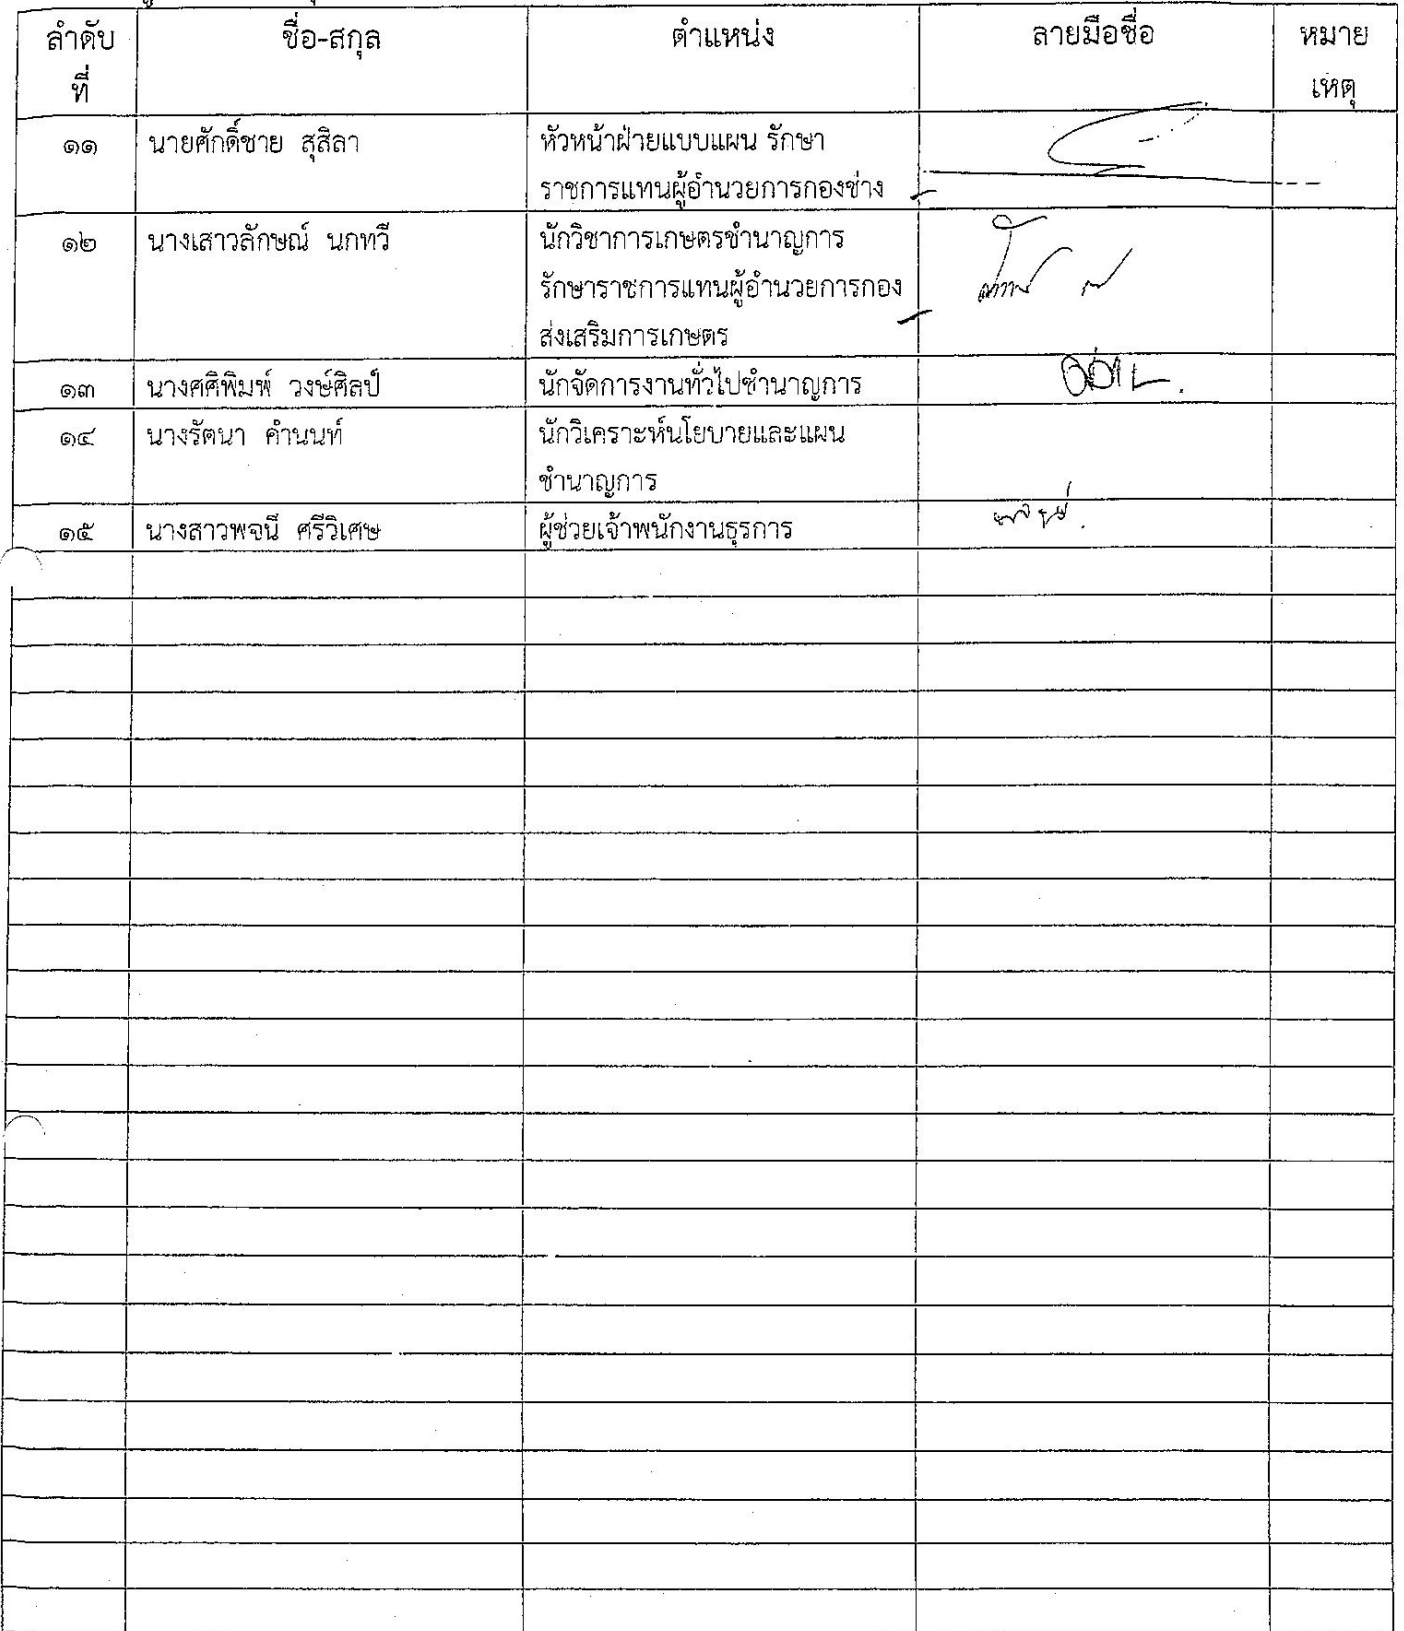 ลำดับ ชื่อ-สกุล ตำแหน่ง ลายมือชื่อ หมาย
ที่ เหตุ
๑๑ นายศักดิ์ชาย สุสิลา หัวหน้าฝ่ายแบบแผน รักษา
ราชการแทนผู้อำนวยการกองช่าง
๑๒ นางเสาวลักษณ์ นกทวี นักวิชาการเกษตรชำนาญการ
รักษาราชการแทนผู้อำนวยการกอง
ส่งเสริมการเกษตร
๑๓ นางศศิพิมพ์ วงษ์ศิลป์ นักจัดการงานทั่วไปชำนาญการ
๑๔ นางรัตนา คำนนท์ นักวิเคราะห์นโยบายและแผน
ชำนาญการ
๑๕ นางสาวพจนี ศรีวิเศษ ผู้ช่วยเจ้าพนักงานธุรการ